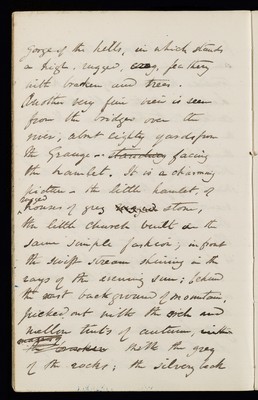 gorge of the hills, in which stands
a high, rugged, crag, feathery
with bracken and trees.
Another very fine view is seen
from the bridge over the
river, about eighty yards from
the Grange – standing facing
the hamlet. It is a charming
picture – the little hamlet, of
rugged
houses of grey stone,
the little church built in the
same simple fashion; in front
the swift stream shining in the
rays of the evening sun; behind
the vast background of mountain,
picked out with the rich and
mellow tints of autumn,
with the grey
of the rocks; the silvery lock